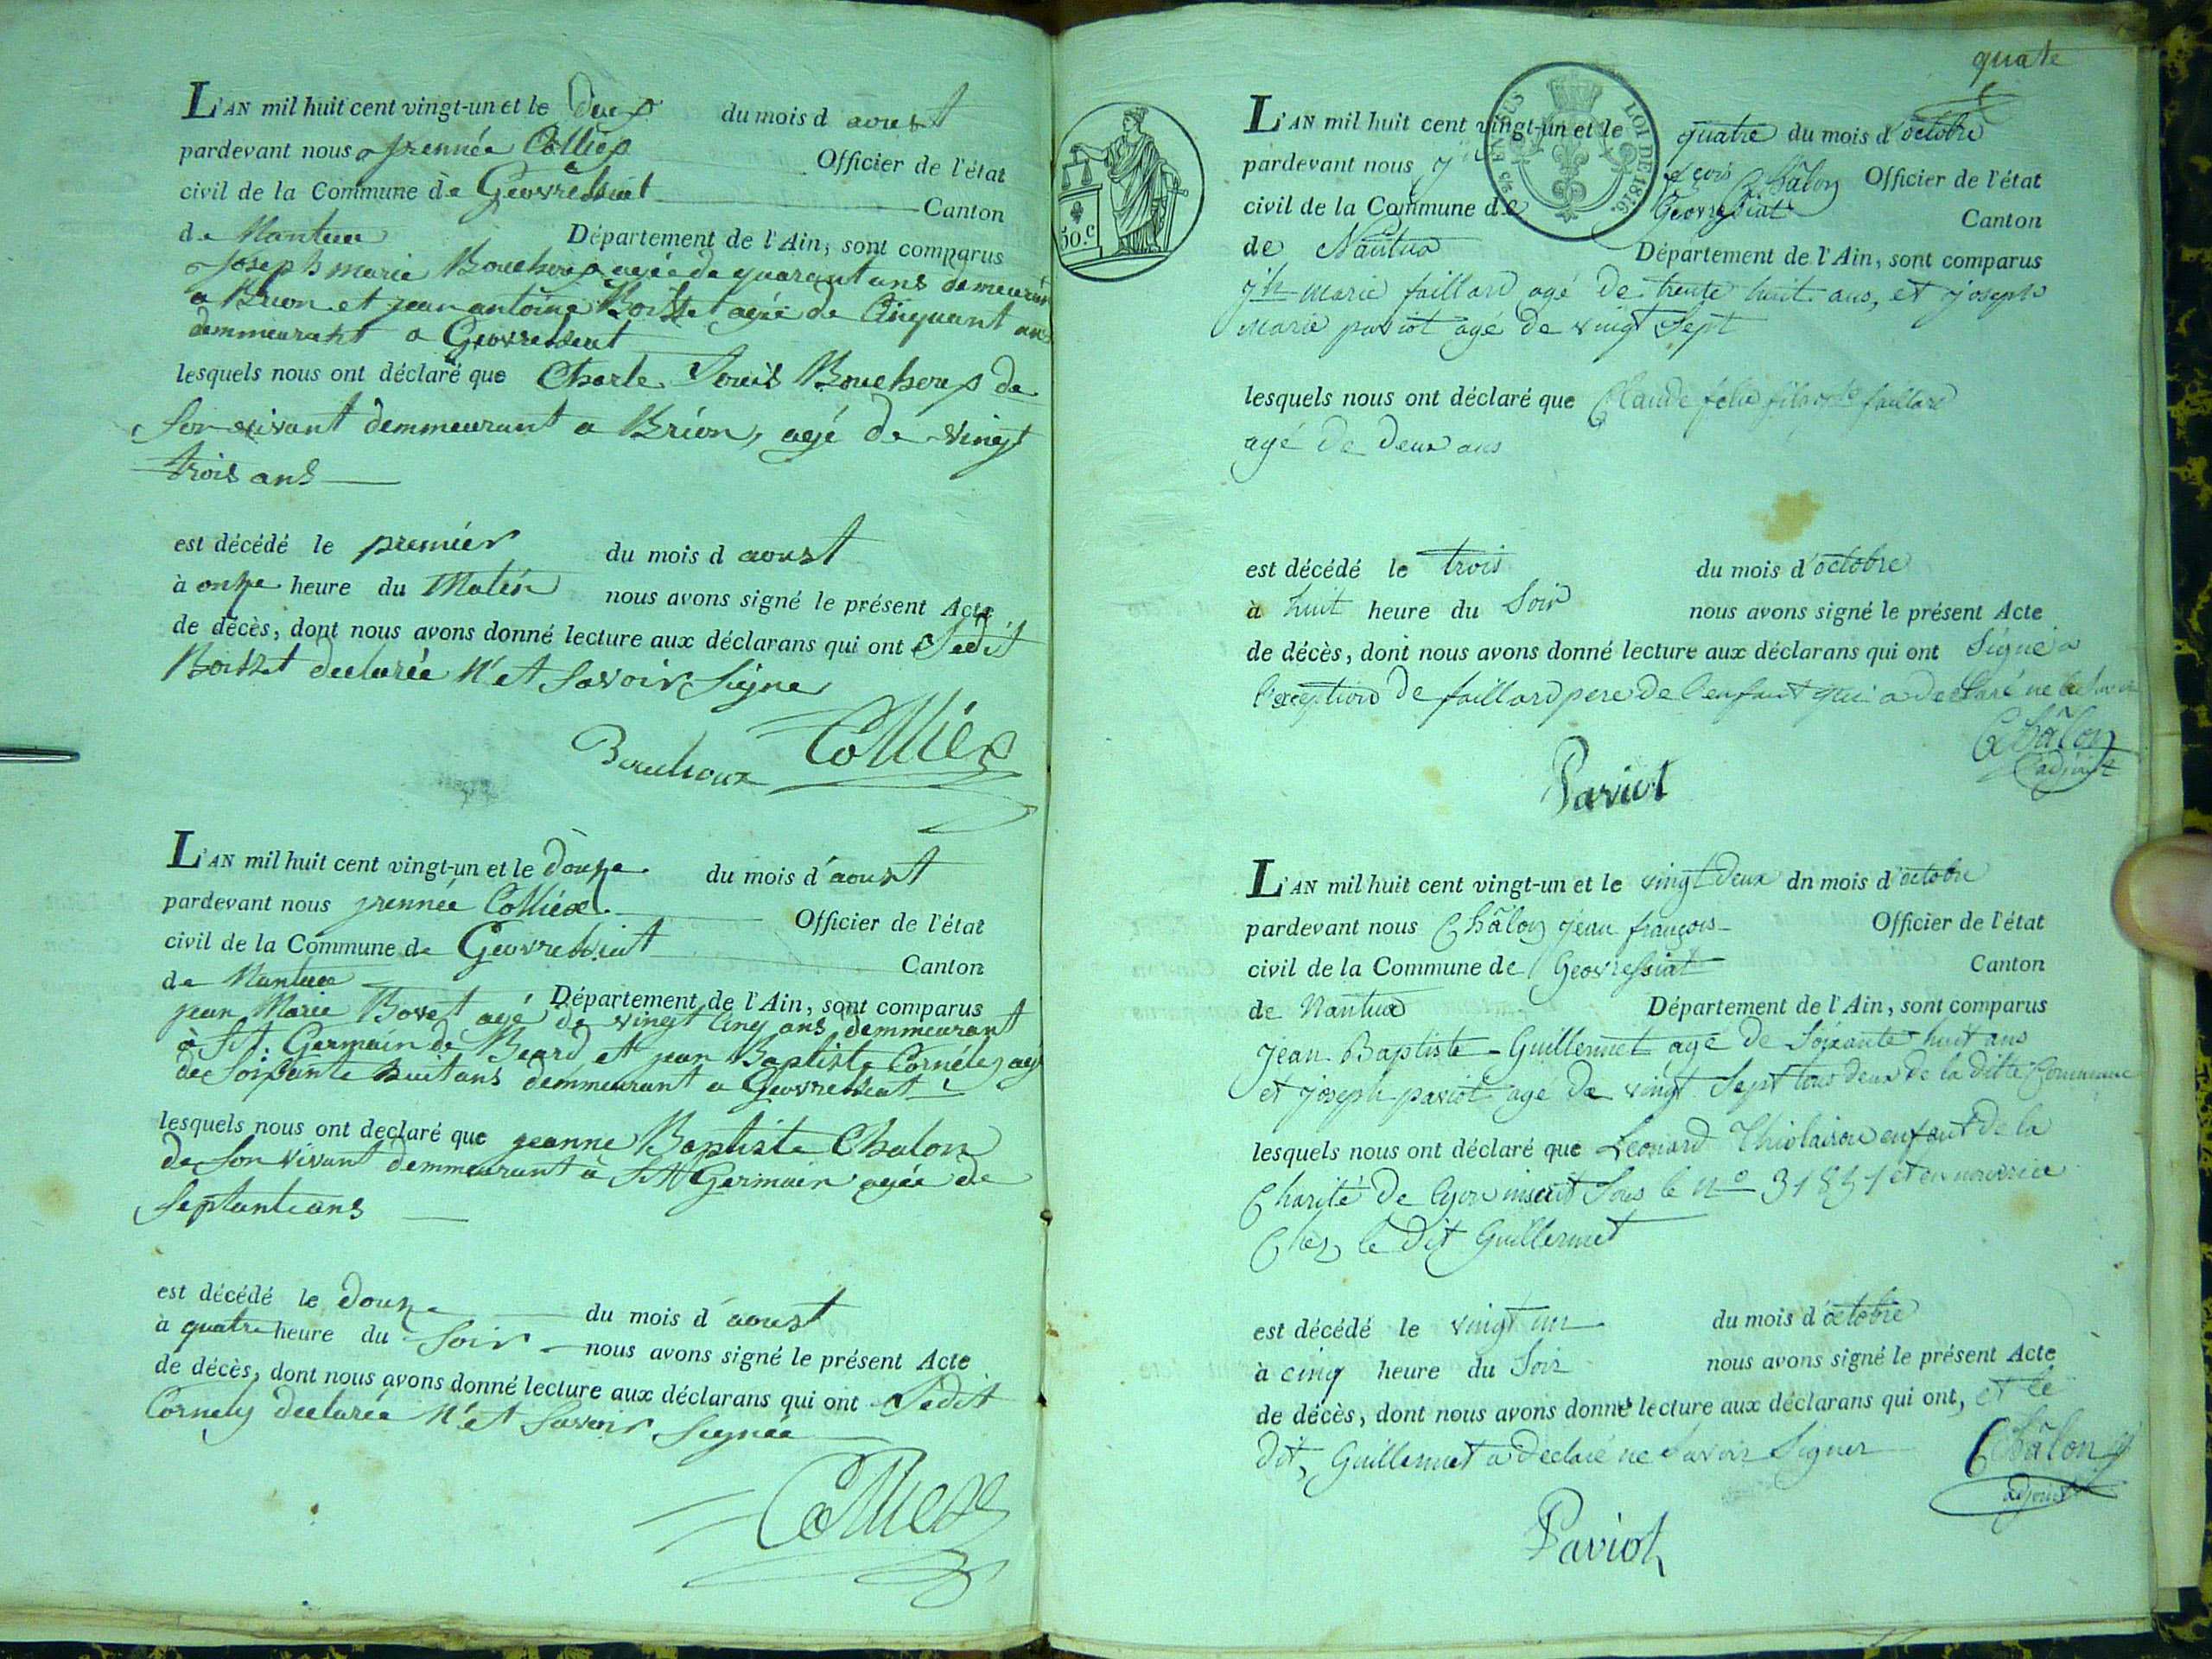 L'AN mil huit cent vingt-un et le deux du mois d aoust
pardevant nous Colliex Officier de l'état
civil de la Commune de Geovressiat Canton
de Nantua Département de l'Ain, sont comparus
Joseph marie Bouchoux agée de quarant ans demeurant
a Brion et jean antoine agée de Cinquant ans
demmeurant a Geovressiat
lesquels nous ont déclaré que Charle Louis Bouchoux de
son vivant demmeurant a Brion, agé de vingt
trois ans
est décédé le premiér du mois d aoust
à onze heure du Matin nous avons signé le présent Acte
de décès, dont nous avons donné lecture aux déclarans qui ont Ledit
declarée n'et savoir signe
Bouchoux Colliex
L'AN mil huit cent vingt-un et le douze du mois d'aoust
pardevant nous Colliex Officier de l'état
civil de la Commune de Geovressiat Canton
de Nantua Département de l'Ain, sont comparus
jean Marie Bovet agé de vingt cinq ans demmeurant
à St. Germain de Beard et jean Baptiste Cornély agé
de soixante huit ans demmeurant a Geovressiat
lesquels nous ont declaré que jeanne Baptiste Chalon
de son vivant demmeurant à St Germain agée de
septant ans
est décédé le douze du mois d'aoust
à quatre heure du soir nous avons signé le présent Acte
de décès, dont nous avons donné lecture aux déclarans qui ont Ledit
Cornely declarée n'et savoir signée
Colliex
quatre
50.c
EN SUS
LOI DE 1816.
L'AN mil huit cent vingt-un et le quatre du mois d'octobre
pardevant nous Châlon Officier de l'état
civil de la Commune de Geovressiat Canton
de Nantua Département de l'Ain, sont comparus
jh marie faillard agé de trente huit ans, et joseph
marie paviot agé de vingt sept
lesquels nous ont déclaré que Claude felix fils faillard
agé de deux ans
est décédé le trois du mois d'octobre
à huit heure du soir nous avons signé le présent Acte
de décès, dont nous avons donné lecture aux déclarans qui ont signé a
l'exception de faillard pere de l'enfant qui a declaré ne le savoir
Châlon
adjoint
Paviot
L'AN mil huit cent vingt-un et le vingt deux dn mois d'octobre
pardevant nous Châlon jean françois Officier de l'état
civil de la Commune de Geovressiat Canton
de Nantua Département de l'Ain, sont comparus
jean Baptiste Guillermet agé de soixante huit ans
et joseph paviot age de vingt sept tous deux de la ditte Commune
lesquels nous ont déclaré que Leonard enfant de la
Charité de lyon inscrit sous le no 31851 et en nourrice
Chez le dit Guillermet
est décédé le vingt un du mois d'octobre
à cinq heure du soir nous avons signé le présent Acte
de décès, dont nous avons donné lecture aux déclarans qui ont, et le
dit, Guillermet a declaré ne savoir signer
Châlon
adjoint
Paviot